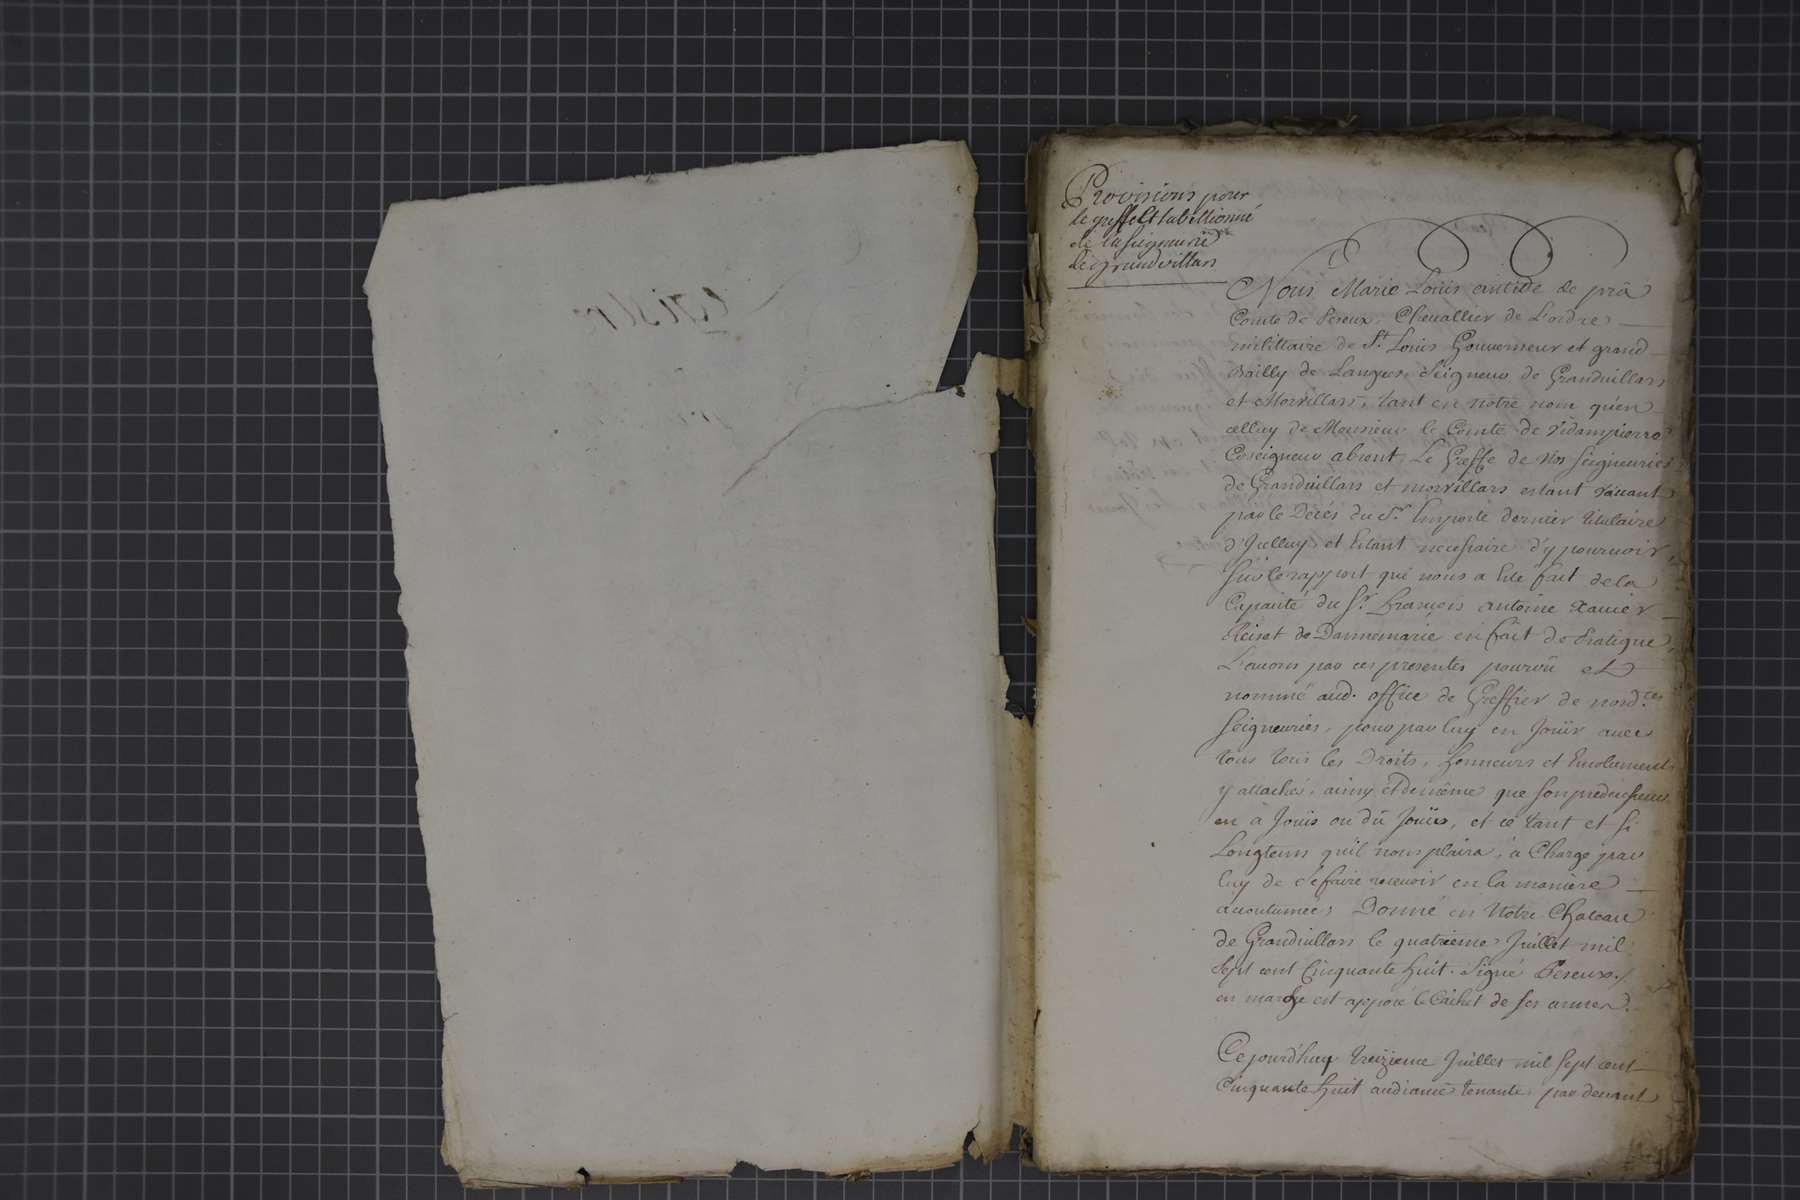 Provisions pour
le greffe et tabellionné
de la seigneurie
de grandvillars
Nous Marie Louis antide de prâ
Comte de Peseux, Chevallier de L'ordre
milittaire de St. Louis Gouverneur et grand
Bailly de Langres, Seigneur de Granduillars
et Morvillars, tant en notre nom qu'en
celluy de Monsieur le Comte de Vidampierre
Coseigneur absent, Le Greffe de Nos seigneuries
de Granduillars et morvillars estant vacant
par le Décés du Sr. Emporte dernier titulaire
d'Jcelluy, et Estant necessaire d'y pourvoir,
sur le rapport qui nous a Eté fait de la
Capacité du Sr. François antoine xavier
Reiset de Dannemarie en fait de Pratique,
L'avons par ces presentes pourvû et
nommé aud. office de Greffier de nosd.tes
Seigneuries, pour par luy en Jouïr avec
tous tous les Droits, honneurs et Emoluments
y attachés, ainsy et de même que son predecesseur
en à Jouis ou dû Jouir, et ce tant et si
Longtems qu'il nous plaira, a Charge par
luy de se faire recevoir en la maniere
acoutumée; Donné en Notre Chateau
de Granduillars le quatrieme Juillet mil
sept cent Cinquante huit. Signé Peseux./
en marge est apposé le Cachet de ses armes.
Cejourd'huy treizieme Juillet mil sept cent
Cinquante huit audiance tenante, par devant